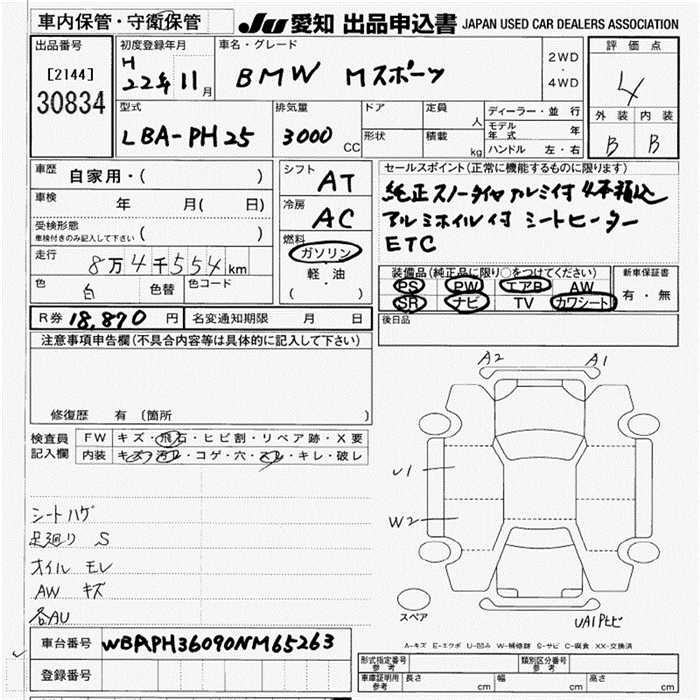 車内保管・守衛保管
JU 愛知 出品申込書 JAPAN USED CAR DEALERS ASSOCIATION
出品番号
[2144]
30834
初度登録年月
H
22年11月
車名・グレード
BMW Mスポーツ
2WD
・
4WD
評価点
4
外装 内装
B B
型式
LBA-PH25
排気量
3000 CC
ドア
形状
定員 人
積載 kg
ディーラー・並行
モデル年式 年
ハンドル 左・右
車歴
自家用・( )
車検
年 月( 日)
受検形態
車検付きのみ記入して下さい ( )
走行
8万4千554km
色 白 色替 色コード
シフト
AT
冷房
AC
燃料
ガソリン
軽・油
( )
セールスポイント(正常に機能するものに限ります)
純正スノータイヤアルミ付4本積込
アルミホイル付 シートヒーター
ETC
装備品(純正品に限り○をつけてください)
PS PW エアB AW
SR ナビ TV カワシート
新車保証書
有・無
R券 18,870 円 名変通知期限 月 日
後日品
注意事項申告欄(不具合内容等は具体的に記入して下さい)
修復歴 有 (箇所 )
検査員
記入欄
FW キズ・飛石・ヒビ割・リペア跡・X要
内装 キズ・汚レ・コゲ・穴・スレ・キレ・破レ
シートハゲ
足廻り S
オイル モレ
AW キズ
各AU
A2 A1
U1
W2
スペア
UA1Pヒビ
A-キズ E-エクボ U-凹み W-補修跡 S-サビ C-腐食 XX-交換済
車台番号 WBAPH36090NM65263
登録番号
形式指定番号
参考
類別区分番号
参考
車庫証明用
参考
長さ cm 幅 cm 高さ cm